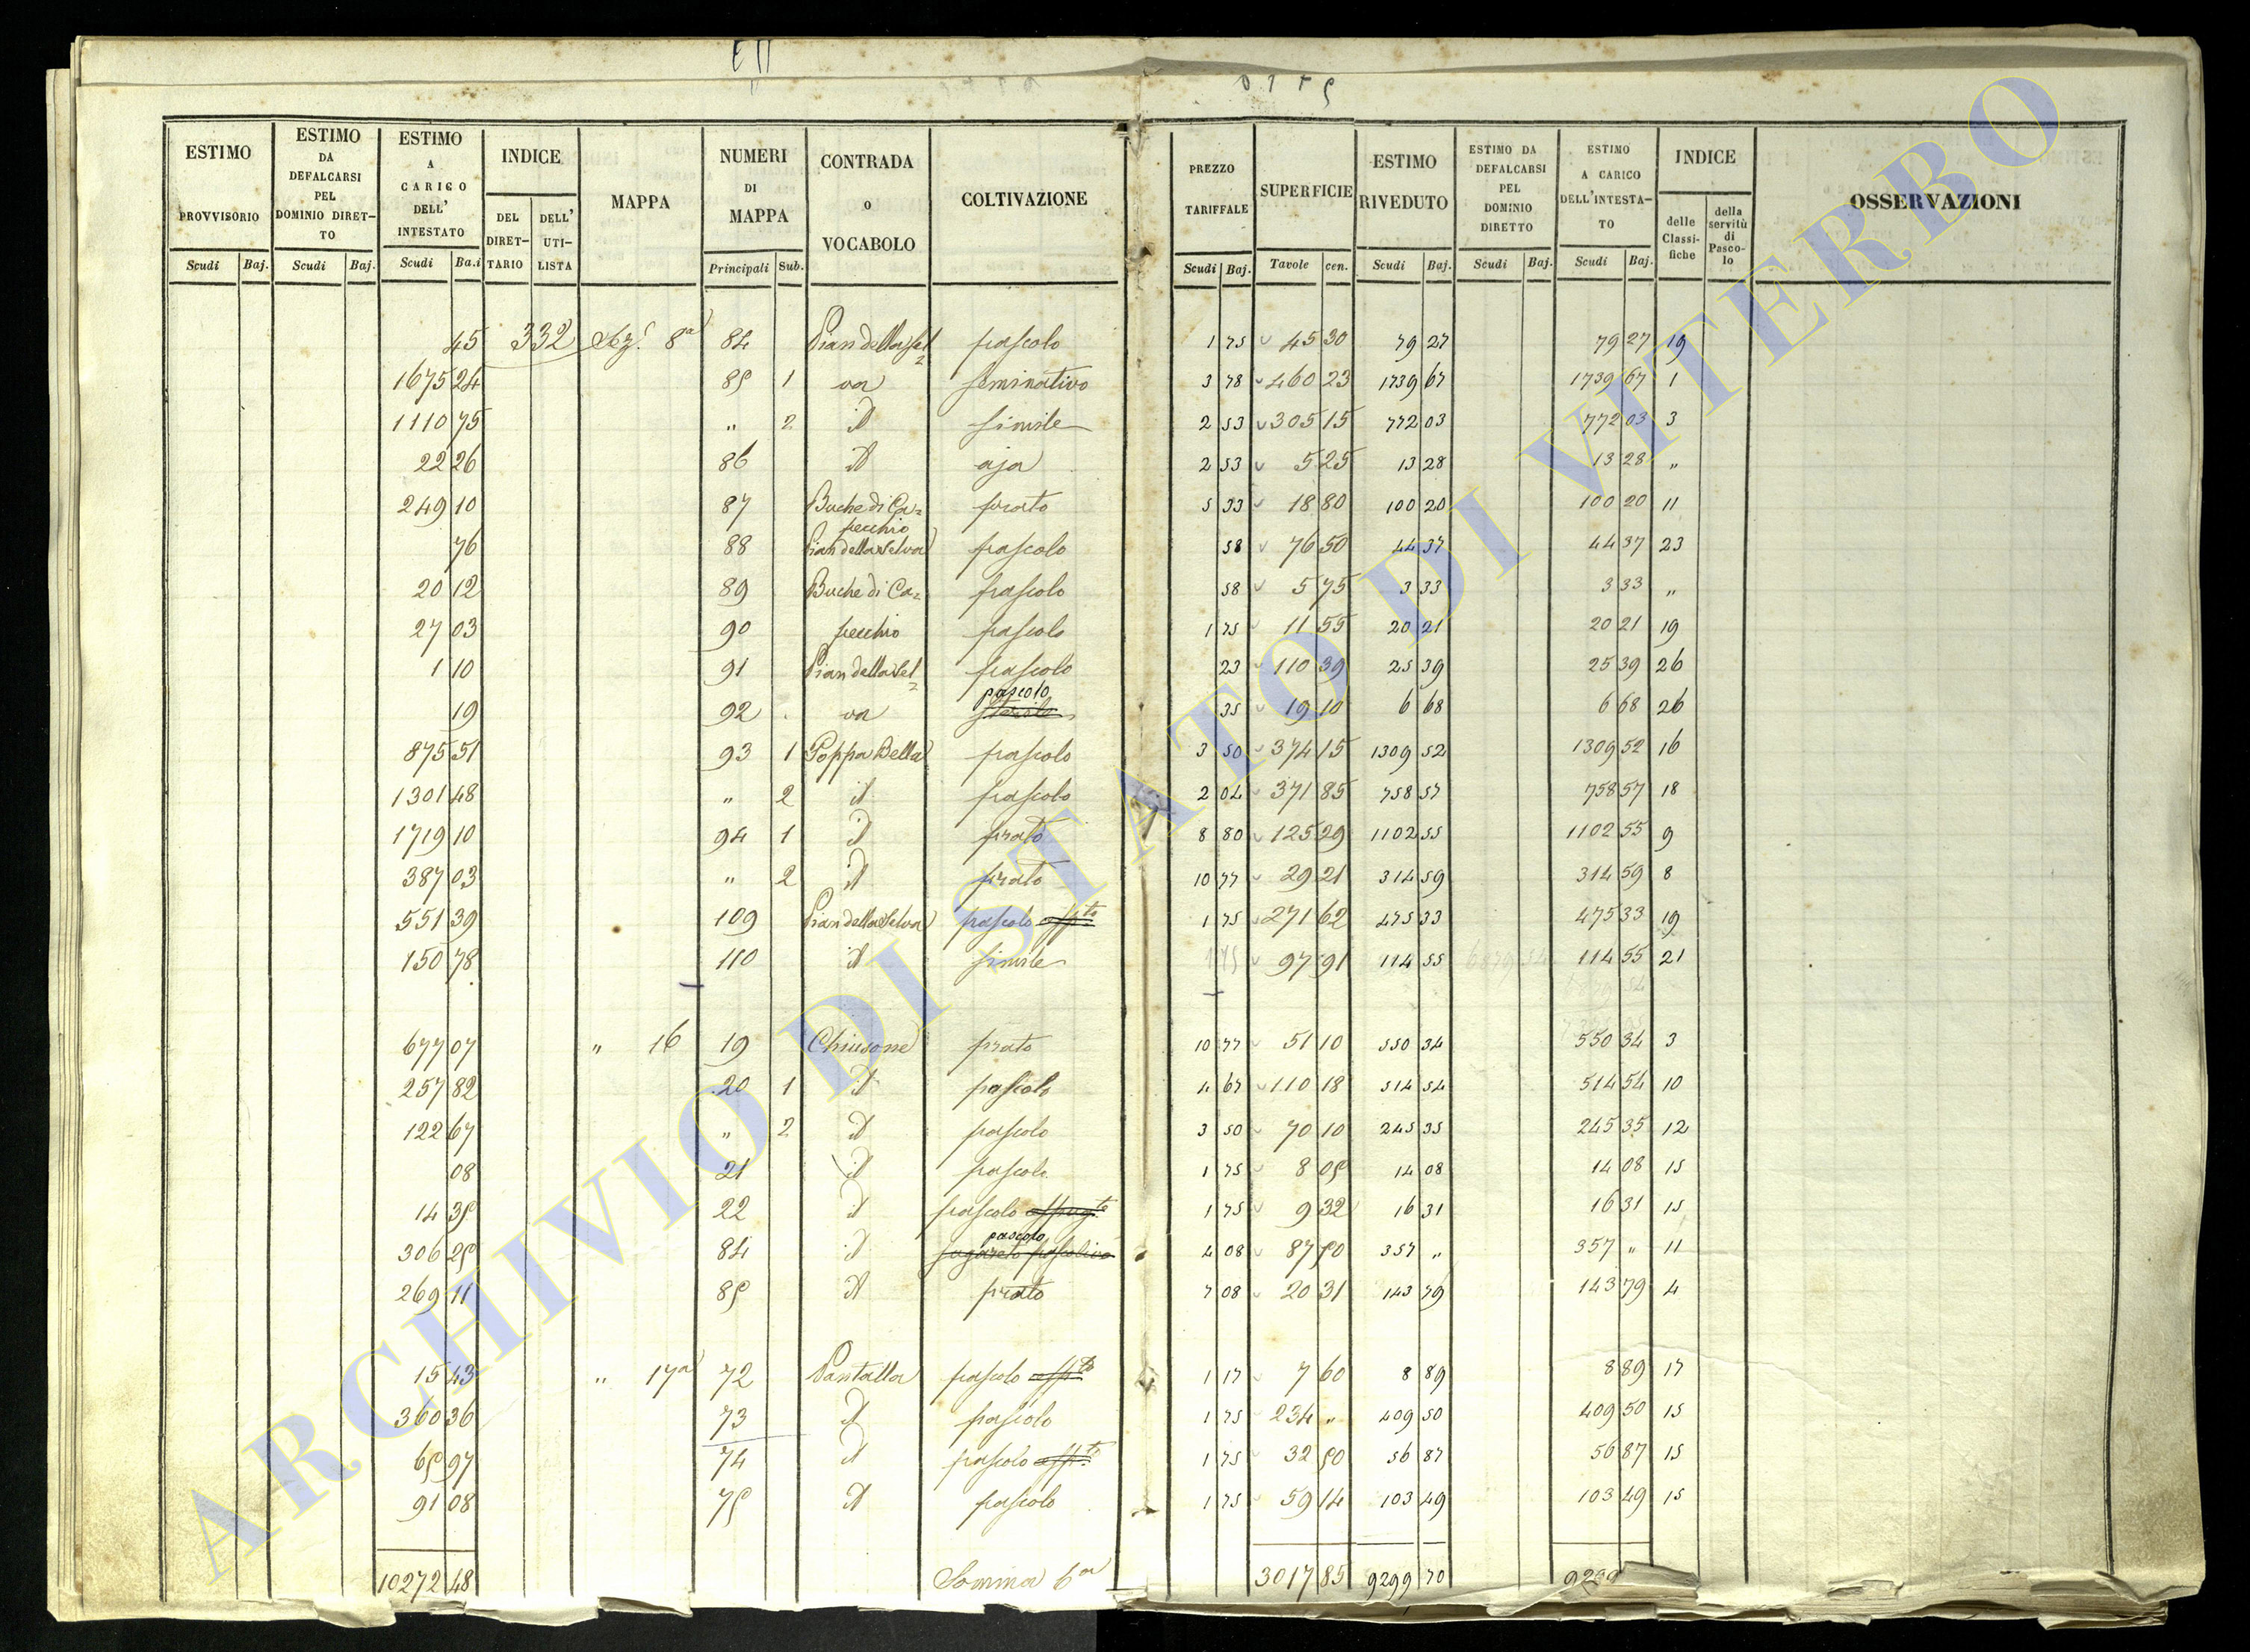 ESTIMO PROVVISORIO | ESTIMO DA DEFALCARSI PEL DOMINIO DIRET-TO | ESTIMO A CARICO DELL' INTESTATO | INDICE | MAPPA | NUMERI DI MAPPA | CONTRADA o VOCABOLO | COLTIVAZIONE | PREZZO TARIFFALE | SUPERFICIE | ESTIMO RIVEDUTO | ESTIMO DA DEFALCARSI PEL DOMINIO DIRETTO | ESTIMO A CARICO DELL'INTESTA-TO | INDICE | OSSERVAZIONI
DEL DIRET-TARIO | DELL' UTI-LISTA | delle Classi-fiche | della servitù di Pasco-lo
Scudi | Baj. | Scudi | Baj. | Scudi | Ba.i | Principali | Sub. | Scudi | Baj. | Tavole | cen. | Scudi | Baj. | Scudi | Baj. | Scudi | Baj.
45 | 332 | 8a | 84 | Pian della Sel= | pascolo | 1 75 | 45 30 | 79 27 | 79 27 | 19
1675 24 | 85 | 1 | va | seminativo | 3 78 | 460 23 | 1739 67 | 1739 67 | 1
1110 75 | " | 2 | id | simile | 2 53 | 305 15 | 772 03 | 772 03 | 3
22 26 | 86 | id | aja | 2 53 | 5 25 | 13 28 | 13 28 | "
249 10 | 87 | Buche di Ca=pecchio | prato | 5 33 | 18 80 | 100 20 | 100 20 | 11
76 | 88 | Pian della Selva | pascolo | 58 | 76 50 | 44 37 | 44 37 | 23
20 12 | 89 | Buche di Ca= | pascolo | 58 | 5 75 | 3 33 | 3 33 | "
27 03 | 90 | pecchio | pascolo | 1 75 | 11 55 | 20 21 | 20 21 | 19
1 10 | 91 | Pian della Sel= | pascolo | 23 | 110 39 | 25 39 | 25 39 | 26
19 | 92 | va | pascolo sterile | 35 | 19 10 | 6 68 | 6 68 | 26
875 51 | 93 | 1 | Poppa Bella | pascolo | 3 50 | 374 15 | 1309 52 | 1309 52 | 16
1301 48 | " | 2 | id | pascolo | 2 04 | 371 85 | 758 57 | 758 57 | 18
1719 10 | 94 | 1 | id | prato | 8 80 | 125 29 | 1102 55 | 1102 55 | 9
387 03 | " | 2 | id | prato | 10 77 | 29 21 | 314 59 | 314 59 | 8
551 39 | 109 | Pian della Selva | pascolo | 1 75 | 271 62 | 475 33 | 475 33 | 19
150 78 | 110 | id | simile | 97 91 | 114 55 | 114 55 | 21
677 07 | " 16 | 19 | Chiusone | prato | 10 77 | 51 10 | 550 34 | 550 34 | 3
257 82 | 20 | 1 | id | pascolo | 4 67 | 110 18 | 514 54 | 514 54 | 10
122 67 | " | 2 | id | pascolo | 3 50 | 70 10 | 245 35 | 245 35 | 12
08 | 21 | id | pascolo | 1 75 | 8 05 | 14 08 | 14 08 | 15
14 35 | 22 | id | pascolo | 1 75 | 9 32 | 16 31 | 16 31 | 15
306 25 | 84 | id | pascolo | 4 08 | 87 50 | 357 " | 357 " | 11
269 11 | 85 | id | prato | 7 08 | 20 31 | 143 79 | 143 79 | 4
15 43 | " 17a | 72 | Pantalla | pascolo | 1 17 | 7 60 | 8 89 | 8 89 | 17
360 36 | 73 | id | pascolo | 1 75 | 234 " | 409 50 | 409 50 | 15
65 97 | 74 | id | pascolo | 1 75 | 32 50 | 56 87 | 56 87 | 15
91 08 | 75 | id | pascolo | 1 75 | 59 14 | 103 49 | 103 49 | 15
10272 48 | Somma 6a | 3017 85 | 9299 70
ARCHIVIO DI STATO DI VITERBO